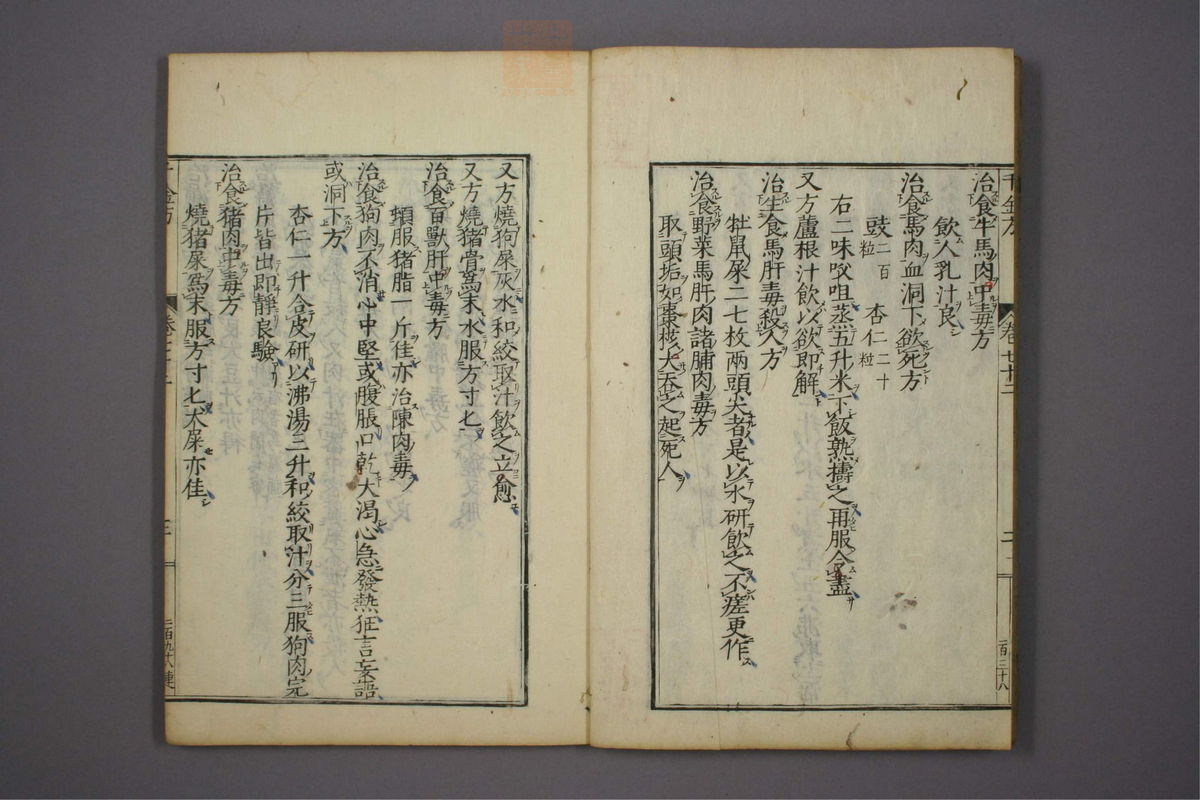 治食牛馬肉中毒方
飲人乳汁良
治食馬肉血洞下欲死方
豉二百粒 杏仁二十粒
右二味㕮咀蒸五升米下飯熟擣之再服令盡
又方蘆根汁飲以欲即解
治生食馬肝毒殺人方
牡鼠屎二七枚兩頭尖者是以水研飲之不瘥更作
治食野菜馬肝肉諸脯肉毒方
取頭垢如棗核大吞之起死人
千金方 卷七十二 二 二百三十八
又方燒狗屎灰水和絞取汁飲之立愈
又方燒猪骨爲末水服方寸匕
治食百獸肝中毒方
頓服猪脂一斤佳亦治陳肉毒
治食狗肉不消心中堅或腹脹口乾大渴心急發熱狂言妄語
或洞下方
杏仁一升合皮研以沸湯三升和絞取汁分三服狗肉完
片皆出即靜良驗
治食猪肉中毒方
燒猪屎爲末服方寸匕犬屎亦佳